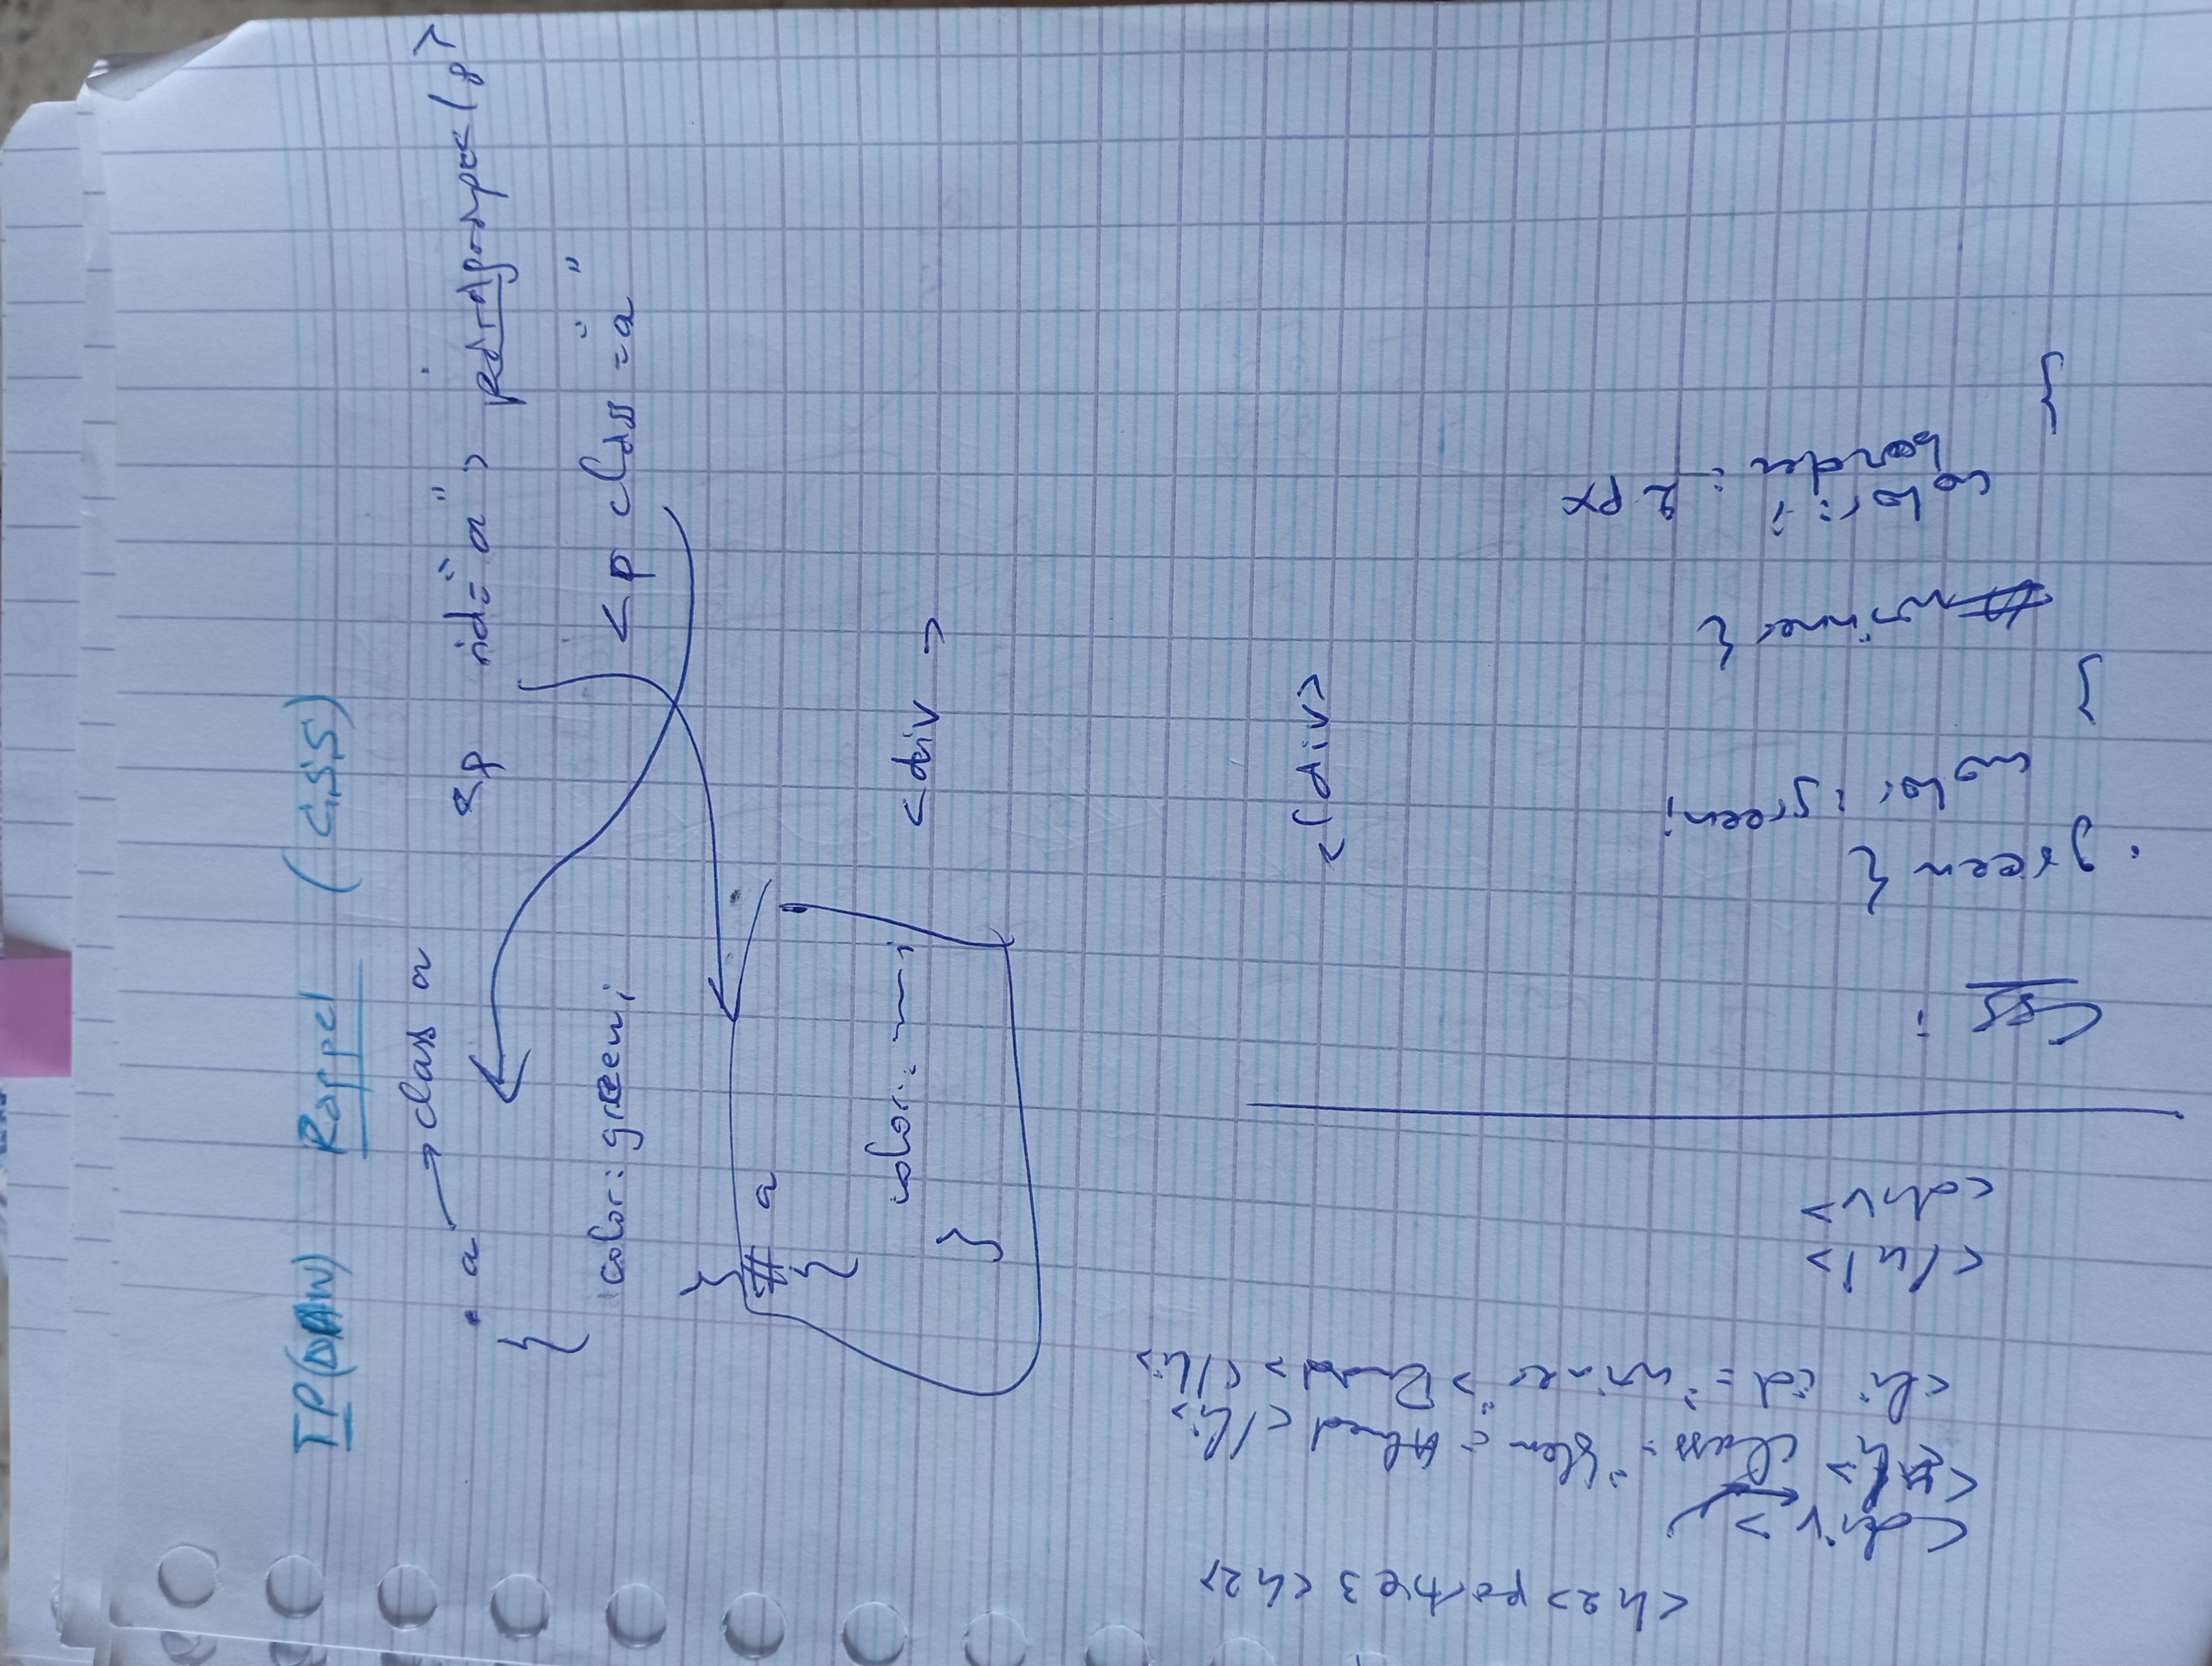 TP(DAW) Rappel (CSS)
.a → class a
<p id="a">
{
color: green;
<p class="a"
}
# a
{
color: —;
}
<div >
</div>
<h2> partie 3 <h2>
<div>
<li class="
Ahmed </li>
<li id="winer"> </li>
</ul>
<div>
CSS :
.green {
color: green;
}
#winner {
color: ;
border: 2px
}